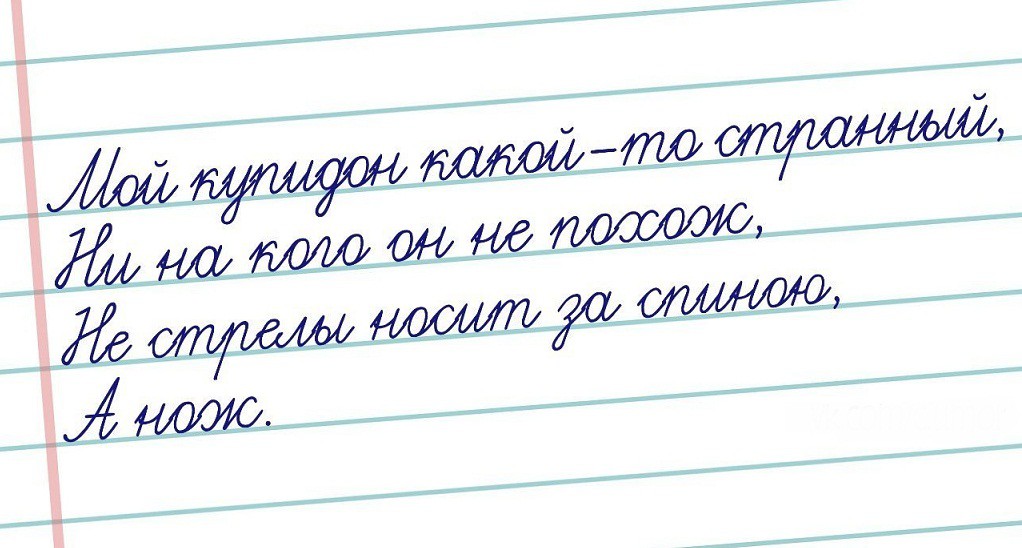 Мой купидон какой-то странный,
Ни на кого он не похож,
Не стрелы носит за спиною,
А нож.